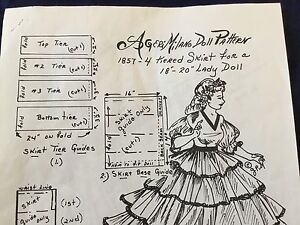 Ageru Milano Doll Pattern
1857-4 tiered Skirt for a
18"-20" Lady Doll
Top Tier
(cut 1)
fold
#2 Tier
(cut 1)
fold
#3 Tier
(cut 1)
fold
Bottom tier
(cut 1)
fold
24" on fold
Skirt Tier Guides
(1.)
16"
Skirt
Guide Only
fold
2.) Skirt Base Guide
waist line
Skirt
guide
only
(1st)
(2nd)